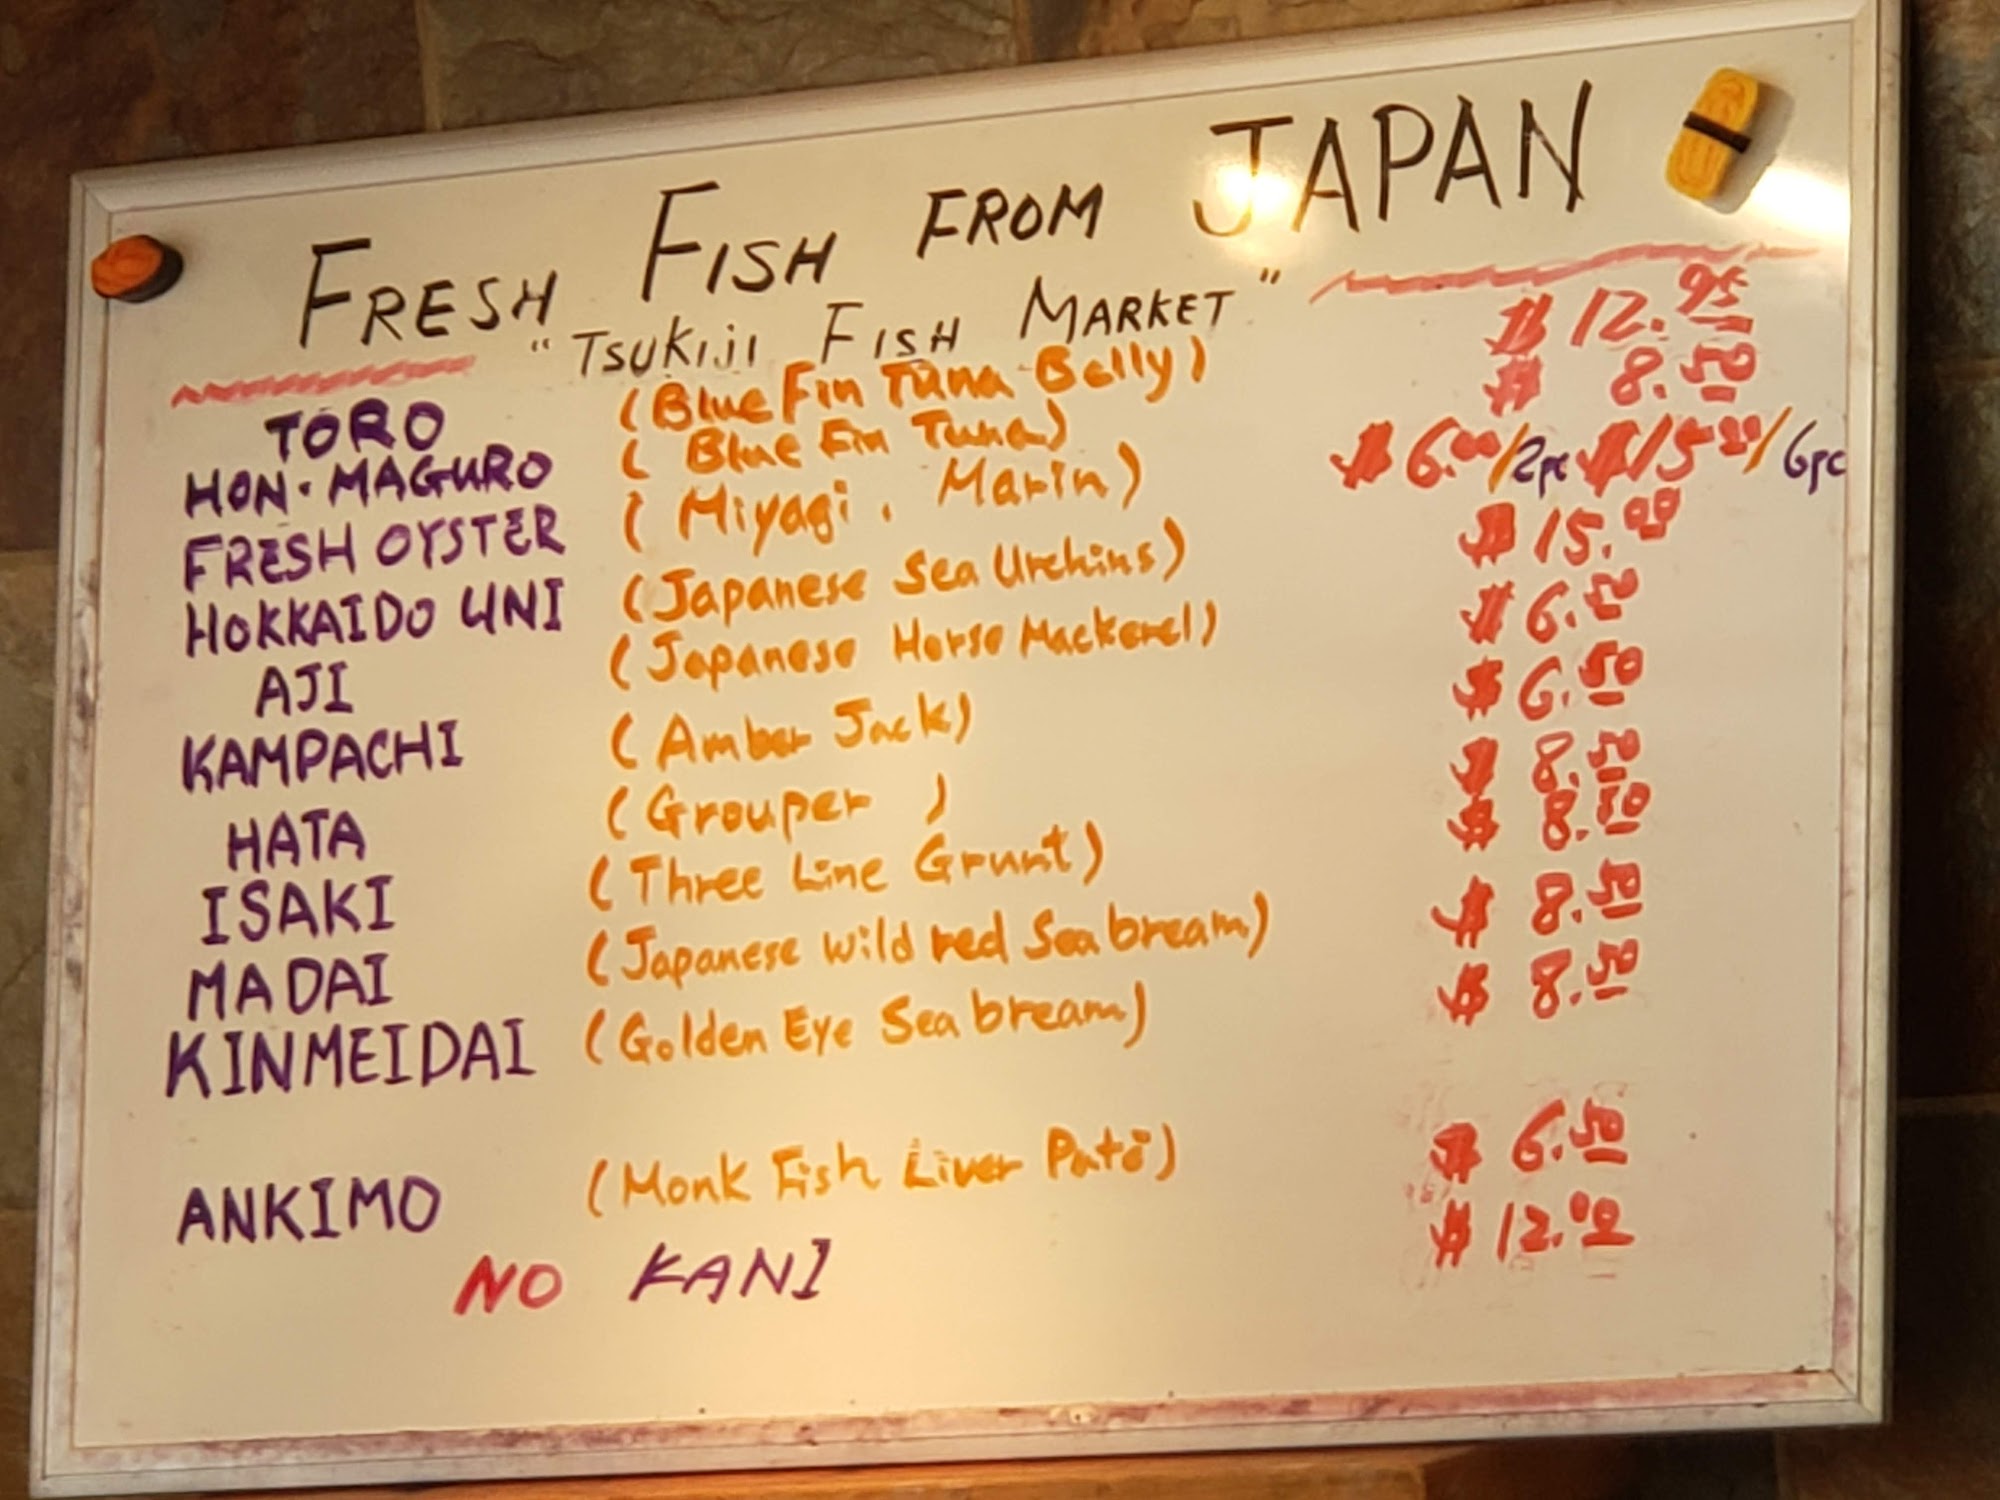 FRESH FISH FROM JAPAN
"TSUKIJI FISH MARKET"
TORO (Blue Fin Tuna Belly) $12.95
HON-MAGURO (Blue Fin Tuna) $8.50
FRESH OYSTER (Miyagi, Marin) $6.00/2pc $15.50/6pc
HOKKAIDO UNI (Japanese Sea Urchins) $15.00
AJI (Japanese Horse Mackerel) $6.50
KAMPACHI (Amber Jack) $6.50
HATA (Grouper) $8.50
ISAKI (Three Line Grunt) $8.50
MADAI (Japanese wild red Sea bream) $8.50
KINMEIDAI (Golden Eye Sea bream) $8.50
ANKIMO (Monk Fish Liver Paté) $6.50
NO KANI $12.00